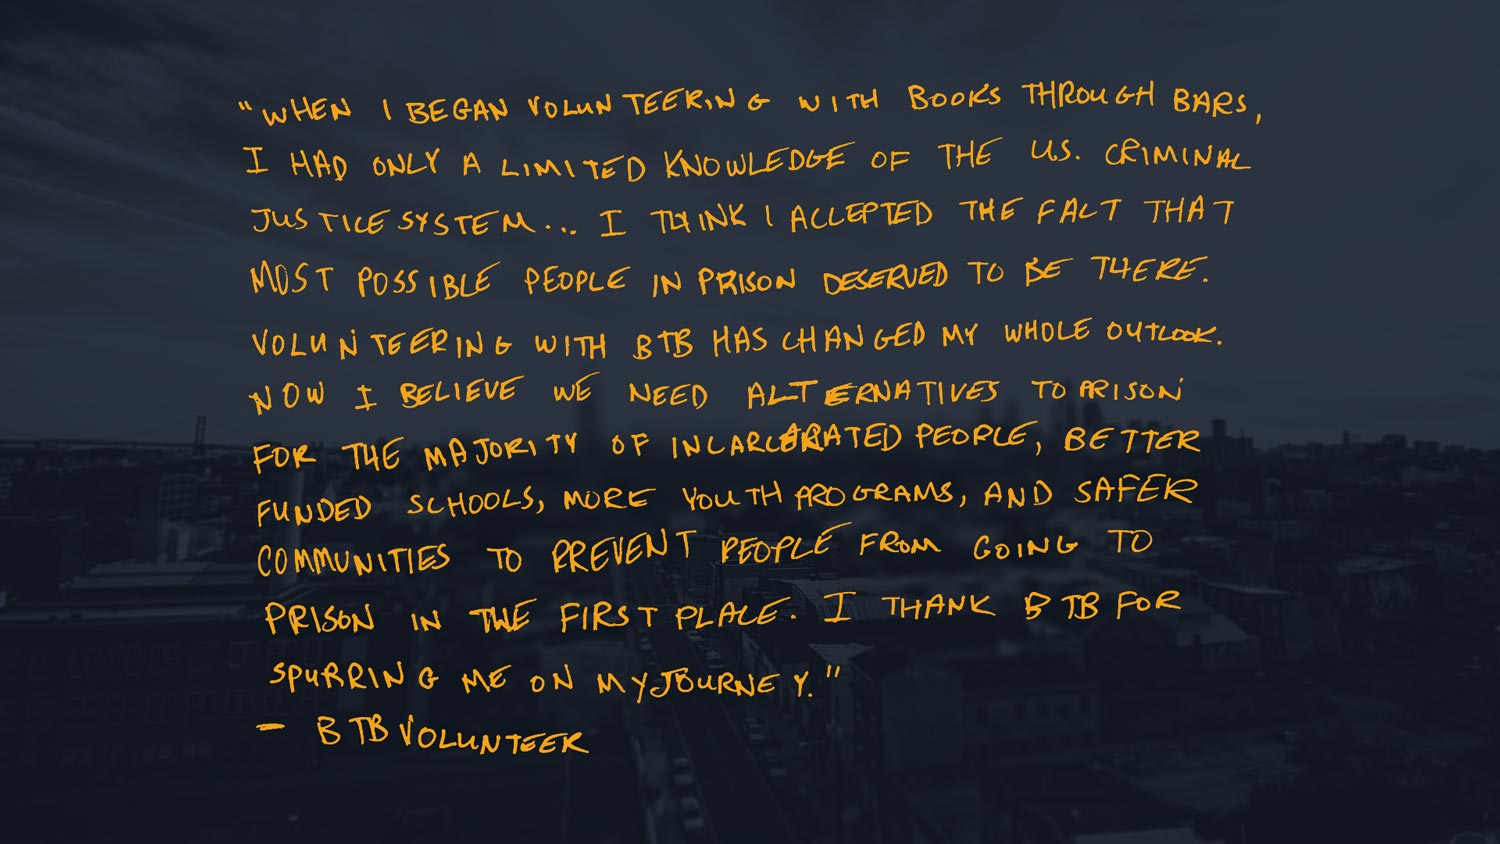 "WHEN I BEGAN VOLUNTEERING WITH BOOKS THROUGH BARS,
I HAD ONLY A LIMITED KNOWLEDGE OF THE U.S. CRIMINAL
JUSTICE SYSTEM... I THINK I ACCEPTED THE FACT THAT
MOST POSSIBLE PEOPLE IN PRISON DESERVED TO BE THERE.
VOLUNTEERING WITH BTB HAS CHANGED MY WHOLE OUTLOOK.
NOW I BELIEVE WE NEED ALTERNATIVES TO PRISON
FOR THE MAJORITY OF INCARCERATED PEOPLE, BETTER
FUNDED SCHOOLS, MORE YOUTH PROGRAMS, AND SAFER
COMMUNITIES TO PREVENT PEOPLE FROM GOING TO
PRISON IN THE FIRST PLACE. I THANK BTB FOR
SPURRING ME ON MY JOURNEY."
- BTB VOLUNTEER